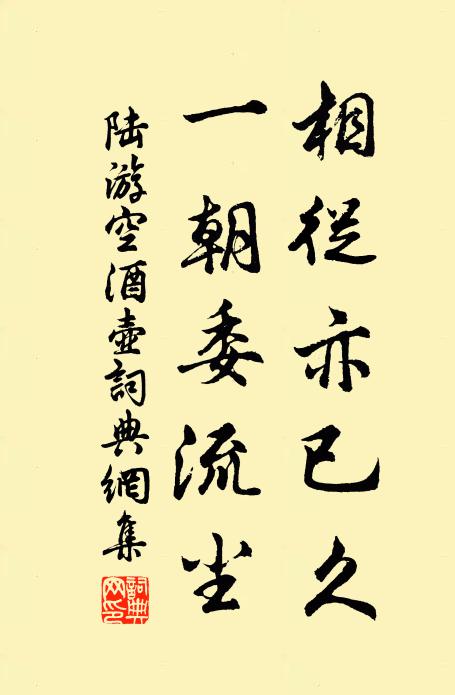 相從亦已久
一朝委流尘
陆游空酒壺詞典網集
詞典网印